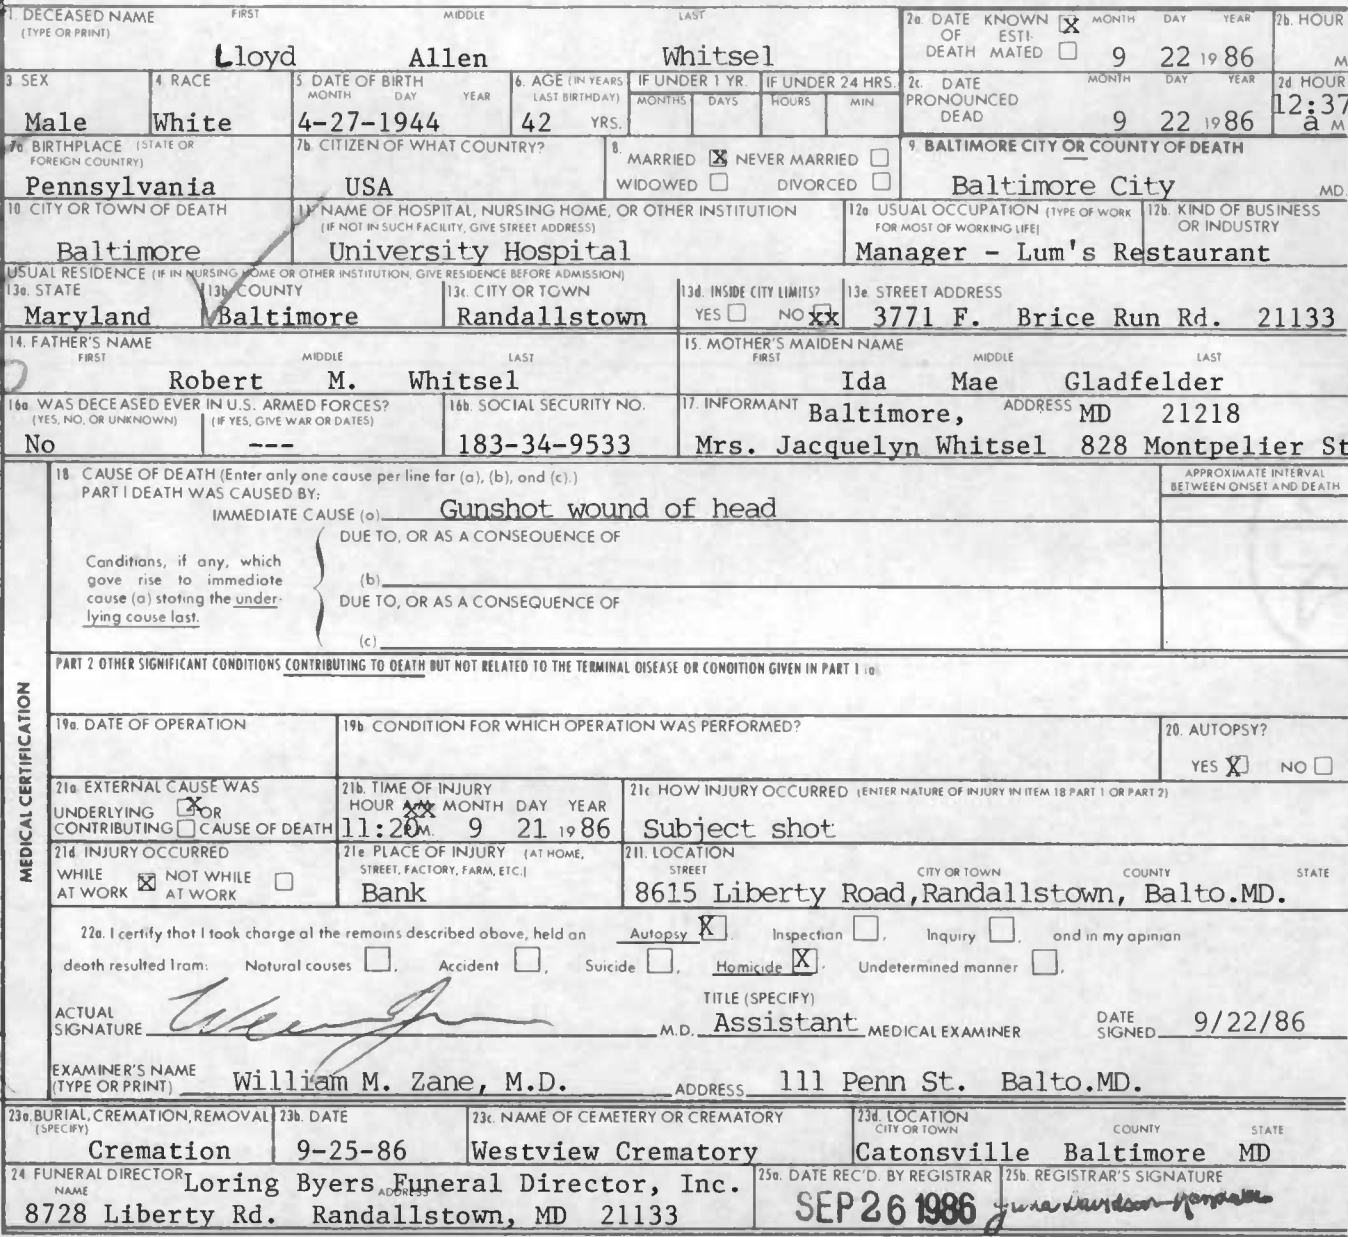 1. DECEASED NAME (TYPE OR PRINT) FIRST MIDDLE LAST
Lloyd Allen Whitsel
2a. DATE OF DEATH KNOWN X ESTI- MATED MONTH DAY YEAR
9 22 1986
2b. HOUR M
3 SEX
Male
4. RACE
White
5 DATE OF BIRTH MONTH DAY YEAR
4-27-1944
6. AGE (IN YEARS LAST BIRTHDAY)
42 YRS.
IF UNDER 1 YR. MONTHS DAYS
IF UNDER 24 HRS. HOURS MIN
2c. DATE PRONOUNCED DEAD MONTH DAY YEAR
9 22 1986
2d HOUR
12:37
a M
7a BIRTHPLACE (STATE OR FOREIGN COUNTRY)
Pennsylvania
7b CITIZEN OF WHAT COUNTRY?
USA
8. MARRIED X NEVER MARRIED
WIDOWED DIVORCED
9. BALTIMORE CITY OR COUNTY OF DEATH
Baltimore City MD.
10. CITY OR TOWN OF DEATH
Baltimore
11. NAME OF HOSPITAL, NURSING HOME, OR OTHER INSTITUTION
(IF NOT IN SUCH FACILITY, GIVE STREET ADDRESS)
University Hospital
12a USUAL OCCUPATION (TYPE OF WORK FOR MOST OF WORKING LIFE)
12b. KIND OF BUSINESS OR INDUSTRY
Manager - Lum's Restaurant
USUAL RESIDENCE (IF IN NURSING HOME OR OTHER INSTITUTION, GIVE RESIDENCE BEFORE ADMISSION)
13a. STATE
Maryland
13b. COUNTY
Baltimore
13c. CITY OR TOWN
Randallstown
13d. INSIDE CITY LIMITS?
YES NO XX
13e STREET ADDRESS
3771 F. Brice Run Rd. 21133
14. FATHER'S NAME FIRST MIDDLE LAST
Robert M. Whitsel
15. MOTHER'S MAIDEN NAME FIRST MIDDLE LAST
Ida Mae Gladfelder
16a. WAS DECEASED EVER IN U.S. ARMED FORCES?
(YES, NO, OR UNKNOWN) (IF YES, GIVE WAR OR DATES)
No ---
16b. SOCIAL SECURITY NO.
183-34-9533
17. INFORMANT ADDRESS
Baltimore, MD 21218
Mrs. Jacquelyn Whitsel 828 Montpelier St
MEDICAL CERTIFICATION
18 CAUSE OF DEATH (Enter only one cause per line for (a), (b), and (c).)
PART I DEATH WAS CAUSED BY:
IMMEDIATE CAUSE (a) Gunshot wound of head
APPROXIMATE INTERVAL BETWEEN ONSET AND DEATH
DUE TO, OR AS A CONSEQUENCE OF
Conditions, if any, which gave rise to immediate cause (a) stating the under- lying cause last.
(b)
DUE TO, OR AS A CONSEQUENCE OF
(c)
PART 2 OTHER SIGNIFICANT CONDITIONS CONTRIBUTING TO DEATH BUT NOT RELATED TO THE TERMINAL DISEASE OR CONDITION GIVEN IN PART 1 (a)
19a. DATE OF OPERATION
19b CONDITION FOR WHICH OPERATION WAS PERFORMED?
20. AUTOPSY?
YES X NO
21a EXTERNAL CAUSE WAS
UNDERLYING X OR
CONTRIBUTING CAUSE OF DEATH
21b. TIME OF INJURY
HOUR MONTH DAY YEAR
11:20 M. 9 21 1986
21c HOW INJURY OCCURRED (ENTER NATURE OF INJURY IN ITEM 18 PART 1 OR PART 2)
Subject shot
21d INJURY OCCURRED
WHILE AT WORK X NOT WHILE AT WORK
21e PLACE OF INJURY (AT HOME, STREET, FACTORY, FARM, ETC.)
Bank
21f. LOCATION
STREET CITY OR TOWN COUNTY STATE
8615 Liberty Road,Randallstown, Balto.MD.
22a. I certify that I took charge of the remains described above, held an Autopsy X, Inspection, Inquiry, and in my opinion
death resulted from: Natural causes, Accident, Suicide, Homicide X. Undetermined manner.
ACTUAL SIGNATURE M.D.
TITLE (SPECIFY)
Assistant MEDICAL EXAMINER
DATE SIGNED 9/22/86
EXAMINER'S NAME (TYPE OR PRINT) William M. Zane, M.D. ADDRESS 111 Penn St. Balto.MD.
23a. BURIAL, CREMATION, REMOVAL (SPECIFY)
Cremation
23b. DATE
9-25-86
23c. NAME OF CEMETERY OR CREMATORY
Westview Crematory
23d. LOCATION CITY OR TOWN COUNTY STATE
Catonsville Baltimore MD
24 FUNERAL DIRECTOR NAME ADDRESS
Loring Byers Funeral Director, Inc.
8728 Liberty Rd. Randallstown, MD 21133
25a. DATE REC'D. BY REGISTRAR
SEP 26 1986
25b. REGISTRAR'S SIGNATURE